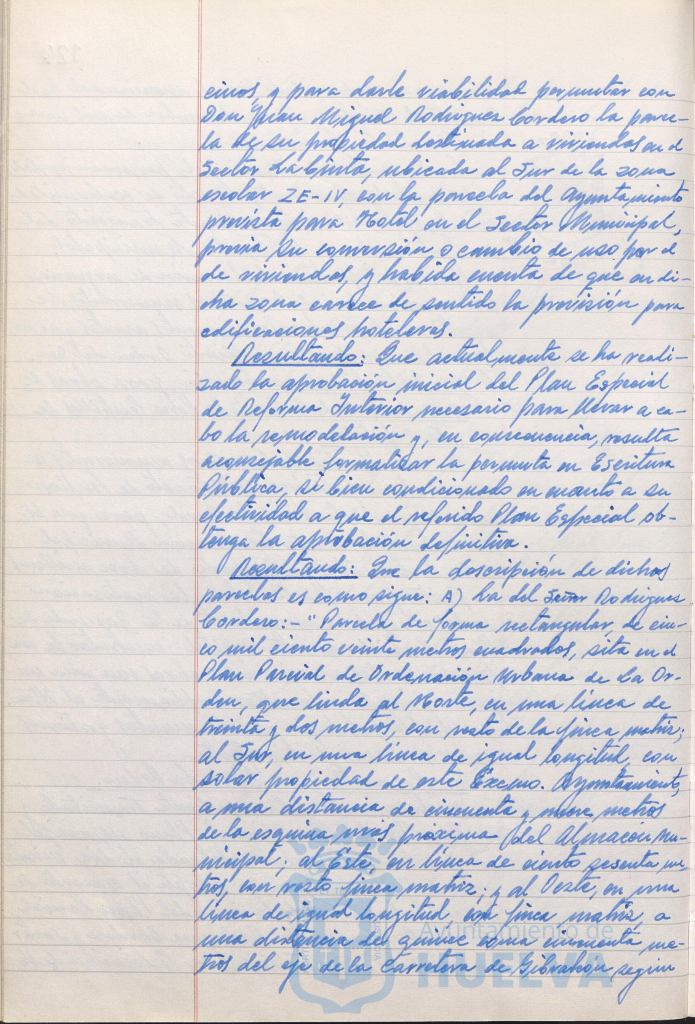 cinos, y para darle viabilidad permutar con
Don Juan Miguel Rodriguez Cordero la parce-
la de su propiedad destinada a viviendas en el
Sector La Cinta, ubicada al Sur de la zona
escolar ZE-IV, con la parcela del Ayuntamiento
prevista para Hotel en el Sector Municipal,
previa su conversión o cambio de uso por el
de viviendas, y habida cuenta de que en di-
cha zona carece de sentido la previsión para
edificaciones hoteleras.
Resultando: Que actualmente se ha reali-
zado la aprobación inicial del Plan Especial
de Reforma Interior necesario para llevar a ca-
bo la remodelación y, en consecuencia, resulta
aconsejable formalizar la permuta en Escritura
Pública, si bien condicionado en cuanto a su
efectividad a que el referido Plan Especial ob-
tenga la aprobación definitiva.
Resultando: Que la descripción de dichas
parcelas es como sigue: A) La del Señor Rodriguez
Cordero:- "Parcela de forma rectangular, de cin-
co mil ciento veinte metros cuadrados, sita en el
Plan Parcial de Ordenación Urbana de La Or-
den, que linda al Norte, en una línea de
treinta y dos metros, con resto de la finca matriz;
al Sur, en una línea de igual longitud, con
solar propiedad de este Excmo. Ayuntamiento,
a una distancia de cincuenta y nueve metros
de la esquina más próxima del Almacen Mu-
nicipal; al Este, en línea de ciento sesenta me-
tros, con resto finca matriz; y al Oeste, en una
línea de igual longitud, con finca matriz, a
una distancia de quince coma cincuenta me-
tros del eje de la Carretera de Gibraleon, segun
Ayuntamiento de
HUELVA